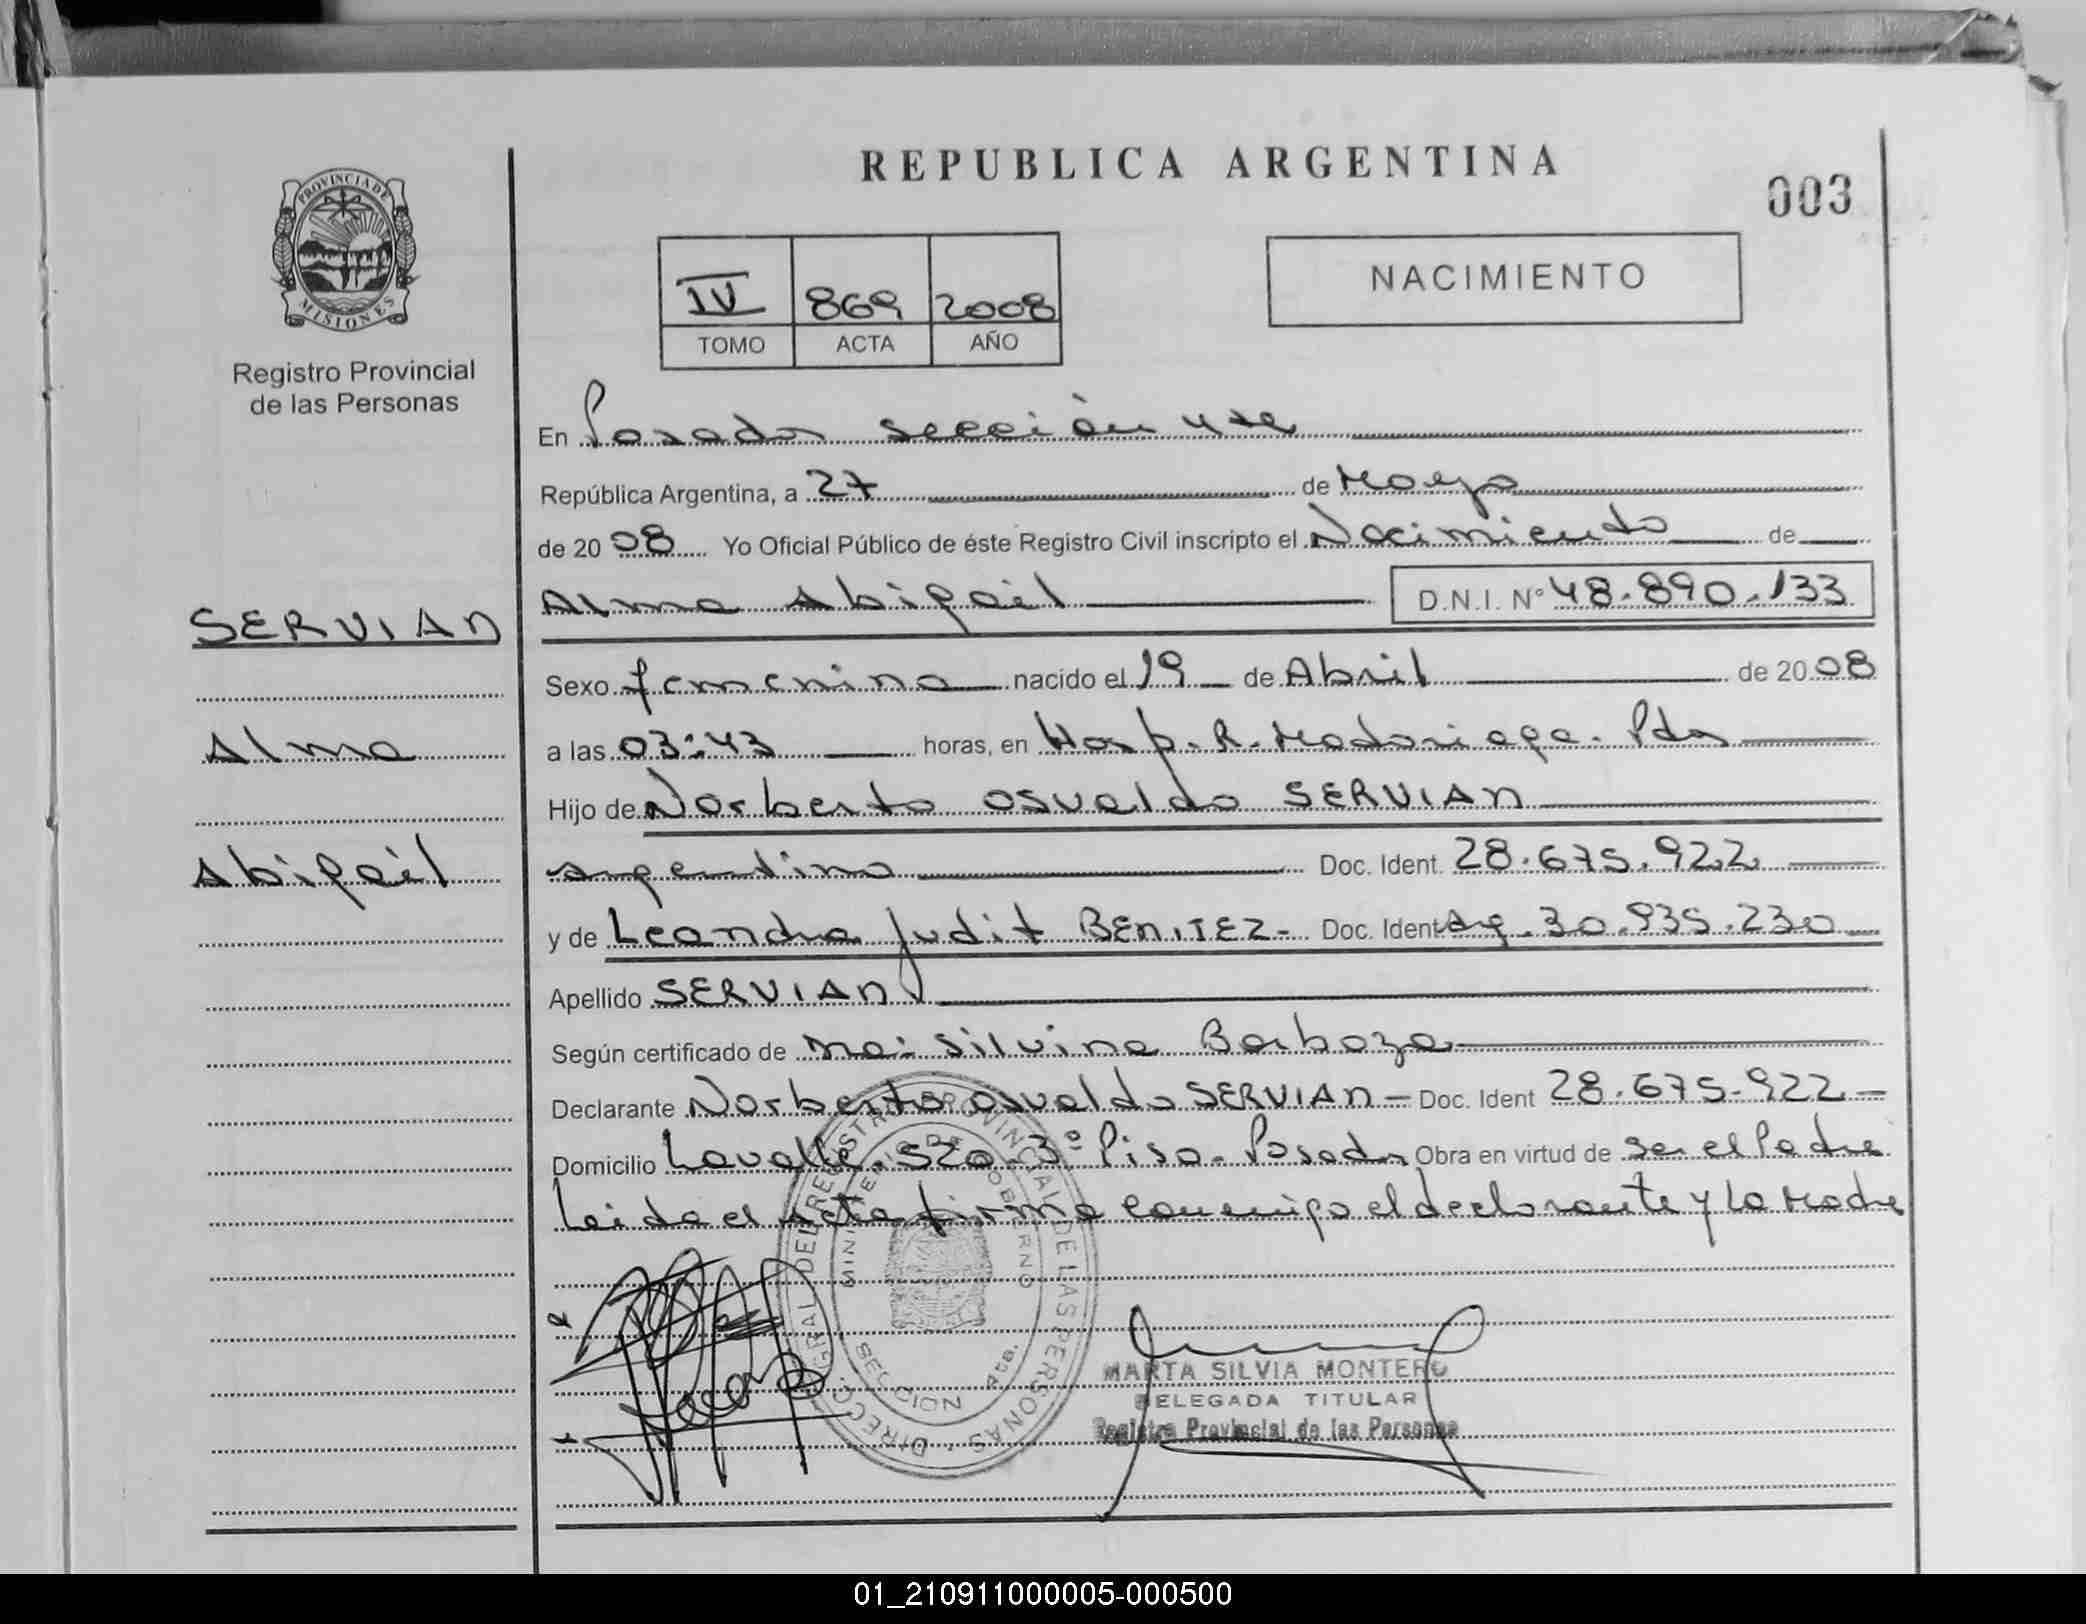 REPUBLICA ARGENTINA
003
PROVINCIA DE
MISIONES
Registro Provincial
de las Personas
NACIMIENTO
IV 869 2008
TOMO ACTA AÑO
En Posadas sección
República Argentina, a 27 de Mayo
de 2008 Yo Oficial Público de éste Registro Civil inscripto el Nacimiento de
Alma Abigail D.N.I. Nº 48.890.133
SERVIAN
Alma
Abigail
Sexo femenino nacido el 19 de Abril de 2008
a las 03:43 horas, en Hosp. R. Madariaga. Pdas
Hijo de Norberto Osvaldo SERVIAN
argentino Doc. Ident. 28.675.922
y de Leandra Judit BENITEZ- Doc. Ident Arg. 30.935.230
Apellido SERVIAN
Según certificado de Ma: Silvina Barboza
Declarante Norberto Osvaldo SERVIAN - Doc. Ident 28.675.922 -
Domicilio Lavalle 520. 3º Piso - Posadas Obra en virtud de ser el Padre
Leida el Acta firma conmigo el declarante y la Madre
DIRECC. GRAL DEL REGISTRO PROVINCIAL DE LAS PERSONAS
MINISTERIO DE GOBIERNO
SECCION 4ta.
MARTA SILVIA MONTERO
DELEGADA TITULAR
Registro Provincial de las Personas
01_210911000005-000500